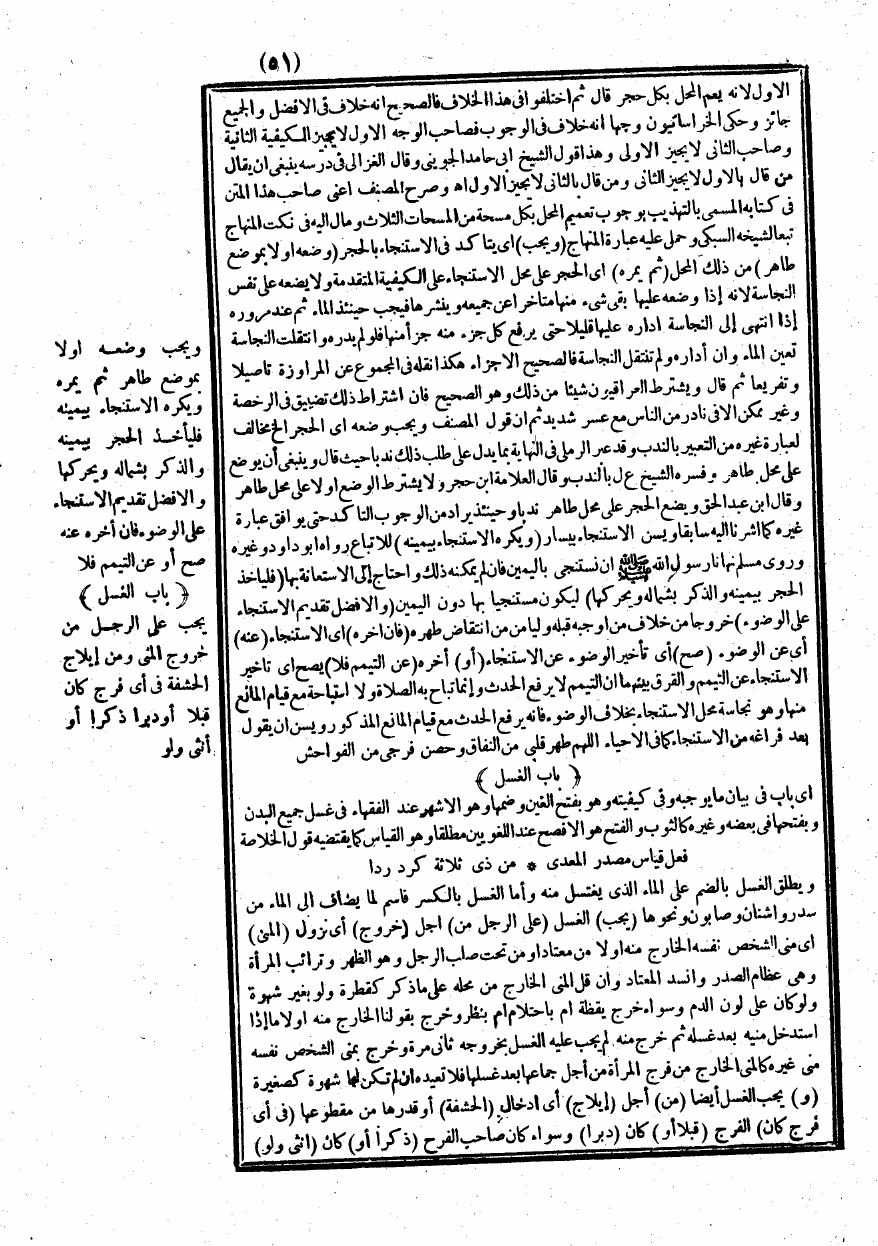 (٥١)
الاول لانه يعم المحل بكل حجر قال ثم اختلفوا فى هذا الخلاف فالصحيح انه خلاف فى الافضل والجميع
جائز وحكى الخراسانيون وجها انه خلاف فى الوجوب فصاحب الوجه الاول لا يجيز الكيفية الثانية
وصاحب الثانى لا يجيز الاولى وهذا قول الشيخ ابى حامد الجوينى وقال الغزالى فى درسه ينبغى ان يقال
من قال بالاول لا يجيز الثانى ومن قال بالثانى لا يجيز الاول اه وصرح المصنف اعنى صاحب هذا المتن
فى كتابه المسمى بالتهذيب بوجوب تعميم المحل بكل مسحة من المسحات الثلاث ومال اليه فى نكت المنهاج
تبعا لشيخه السبكى وحمل عليه عبارة المنهاج (ويجب) اى يتاكد فى الاستنجاء بالحجر (وضعه اولا بموضع
طاهر) من ذلك المحل (ثم يمره) اى الحجر على محل الاستنجاء على الكيفية المتقدمة ولا يضعه على نفس
النجاسة لانه إذا وضعه عليها بقى شىء منها متاخرا عن جميعه وينشرها فيجب حينئذ الماء ثم عند مروره
إذا انتهى إلى النجاسة اداره عليها قليلا حتى يرفع كل جزء منه جزأ منها فلو لم يدره وانتقلت النجاسة
تعين الماء وان أداره ولم تنتقل النجاسة فالصحيح الاجزاء هكذا نقله فى المجموع عن المراوزة تاصيلا
وتفريعا ثم قال ويشترط العراقيون شيئا من ذلك وهو الصحيح فان اشتراط ذلك تضييق فى الرخصة
وغير ممكن الا فى نادر من الناس مع عسر شديد ثم ان قول المصنف ويجب وضعه اى الحجر الخ مخالف
لعبارة غيره من التعبير بالندب وقد عبر الرملى فى النهاية بما يدل على طلب ذلك ندبا حيث قال وينبغى أن يوضع
على محل طاهر وفسره الشيخ ع ل بالندب وقال العلامة ابن حجر ولا يشترط الوضع اولا على محل طاهر
وقال ابن عبد الحق ويضع الحجر على محل طاهر ندبا وحينئذ يراد من الوجوب التاكد حتى يوافق عبارة
غيره كما اشرنا اليه سابقا ويسن الاستنجاء بيسار (ويكره الاستنجاء بيمينه) للاتباع رواه ابو داود وغيره
وروى مسلم نهانا رسول الله ﷺ ان نستنجى باليمين فان لم يمكنه ذلك واحتاج إلى الاستعانة بها (فلياخذ
الحجر بيمينه والذكر بشماله ويحركها) ليكون مستنجيا بها دون اليمين (والافضل تقديم الاستنجاء
على الوضوء) خروجا من خلاف من اوجبه قبله وليامن من انتقاض طهره (فان اخره) اى الاستنجاء (عنه)
أى عن الوضوء (صح) أى تأخير الوضوء عن الاستنجاء (أو) أخره (عن التيمم فلا) يصح اى تاخير
الاستنجاء عن التيمم والفرق بينهما ان التيمم لا يرفع الحدث وإنما تباح به الصلاة ولا استباحة مع قيام المانع
منها وهو نجاسة محل الاستنجاء بخلاف الوضوء فانه يرفع الحدث مع قيام المانع المذكور ويسن ان يقول
بعد فراغه من الاستنجاء كما فى الاحياء اللهم طهر قلبى من النفاق وحصن فرجى من الفواحش
﴿ باب الغسل ﴾
اى باب فى بيان ما يوجبه وفى كيفيته وهو بفتح الغين وضمها وهو الاشهر عند الفقهاء فى غسل جميع البدن
وبفتحها فى بعضه وغيره كالثوب والفتح هو الافصح عند اللغويين مطلقا وهو القياس كما يقتضيه قول الخلاصة
فعل قياس مصدر المعدى * من ذى ثلاثة كرد ردا
ويطلق الغسل بالضم على الماء الذى يغتسل منه وأما الغسل بالكسر فاسم لما يضاف الى الماء من
سدر واشنان وصابون ونحوها (يجب) الغسل (على الرجل من) اجل (خروج) أى نزول (المنى)
اى منى الشخص نفسه الخارج منه اولا من معتاد او من تحت صلب الرجل وهو الظهر وترائب المرأة
وهى عظام الصدر وانسد المعتاد وان قل المنى الخارج من محله على ما ذكر كقطرة ولو بغير شهوة
ولو كان على لون الدم وسواء خرج يقظة ام باحتلام ام بنظر وخرج بقولنا الخارج منه اولا ما إذا
استدخل منيه بعد غسله ثم خرج منه لم يجب عليه الغسل بخروجه ثانى مرة وخرج بمنى الشخص نفسه
منى غيره كالمنى الخارج من فرج المرأة من أجل جماعها بعد غسلها فلا تعيده ان لم تكن لها شهوة كصغيرة
(و) يجب الغسل أيضا (من) أجل (إيلاج) أى ادخال (الحشفة) أو قدرها من مقطوعها (فى أى
فرج كان) الفرج (قبلا أو) كان (دبرا) وسواء كان صاحب الفرج (ذكرا أو) كان (انثى ولو)
ويجب وضعه اولا
بموضع طاهر ثم يمره
ويكره الاستنجاء بيمينه
فليأخذ الحجر بيمينه
والذكر بشماله ويحركها
والافضل تقديم الاستنجاء
على الوضوء فان أخره عنه
صح أو عن التيمم فلا
﴿ باب الغسل ﴾
يجب على الرجل من
خروج المنى ومن إيلاج
الحشفة فى أى فرج كان
قبلا أو دبرا ذكرا أو
أنثى ولو